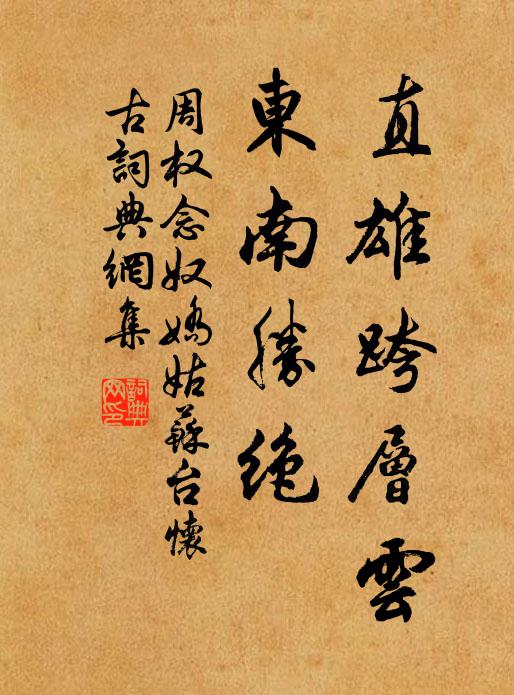 直雄跨層雲
東南勝絕
周权念奴嬌姑蘇台懷
古詞典網集
詞典
网印